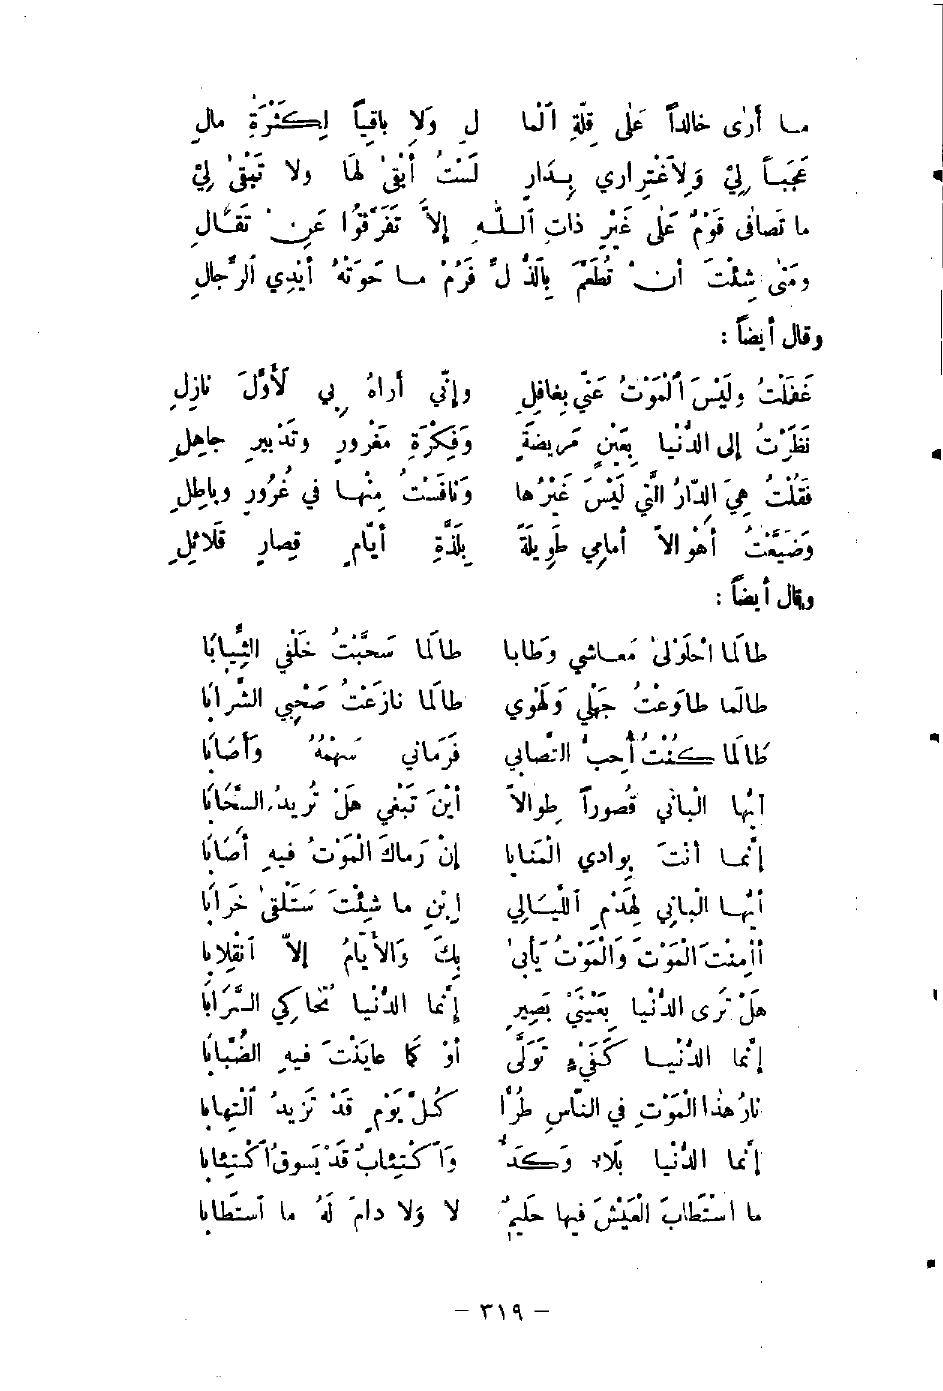 مـا أرٰى خالداً عَلٰى قِلّةِ ٱلْما لِ وَلا باقِياً لِكَثْرَةِ مالِ
عَجَباً لِيْ وَلِاغْتِراري بِدارٍ لَسْتُ أبْقىٰ لَهَا ولا تَبْقىٰ لِيْ
ما تَصافىٰ قَوْمٌ عَلى غَيْرِ ذاتِ ٱللّٰهِ إلاَّ تَفَرَّقُوا عَنِ تَقَالِ
ومَتىٰ شِئْتَ أنْ تُطَعَّمَ بِٱلذُّ لِّ فَرُمْ مـا حَوَتْهُ أيْدِي ٱلرَّجالِ
وقال أيضاً :
غَفَلْتُ ولَيْسَ ٱلْمَوْتُ عَنّي بِغافِلِ وإنّي أراهُ بي لَأوَّلَ نازِلِ
نَظَرْتُ إلى الدُّنْيا بِعَيْنٍ مَريضَةٍ وَفِكْرَةِ مَغْرورٍ وتَدْبيرِ جاهِلِ
فَقُلْتُ هِيَ الدّارُ الَّتي لَيْسَ غَيْرُها ونافَسْتُ مِنْها في غُرُورٍ وباطِلِ
وَضَيَّعْتُ أهْوالاً أمامِي طَوِيلَةً بِلَذَّةِ أيّامٍ قِصارٍ قَلائِلِ
وقال أيضاً :
طالَما احْلَوْلىٰ مَعـاشي وطابا طالَما سَحَّبْتُ خَلْفي الثِّيابَا
طالَما طاوَعْتُ جَهْلي وَلَهْوي طالَما نازَعْتُ صَحْبِي الشَّرابَا
طَالَما كُنْتُ أُحِبُّ التَّصابي فَرَماني سَهْمُهُ وَأصَابَا
أيُّها الْباني قُصوراً طِوالاً أيْنَ تَبْغي هَلْ تُريدُ السَّحَابَا
إنَّمـا أنْتَ بِوادي الْمَنايا إنْ رَماكَ الْمَوْتُ فيهِ أصَابَا
أيُّهـا الباني لِهَدْمِ ٱللَّيَالِي اِبْنِ ما شِئْتَ سَتَلْقىٰ خَرَابَا
أأمِنْتَ الْمَوْتَ وَالْمَوْتُ يَأبىٰ بِكَ وَالأيّامُ إلاّ ٱنْقِلابا
هَلْ تَرى الدُّنْيا بِعَيْنَيْ بَصيرٍ إنَّما الدُّنْيا تُحاكي السَّرَابَا
إنَّما الدُّنْيـا كَفَيْءٍ تَوَلّىٰ أوْ كَما عايَنْتَ فيهِ الضَّبَابَا
نارُ هٰذا الْمَوْتِ في النّاسِ طُرّاً كُلَّ يَوْمٍ قَدْ تَزيدُ ٱلْتِهابا
إنَّما الدُّنْيا بَلاءٌ وَكَدٌّ وَٱكْتِئابٌ قَدْ يَسوقُ ٱكْتِئابا
ما اسْتَطابَ الْعَيْشَ فيها حَليمٌ لا وَلا دامَ لَهُ ما ٱستَطابا
– ٣١٩ –